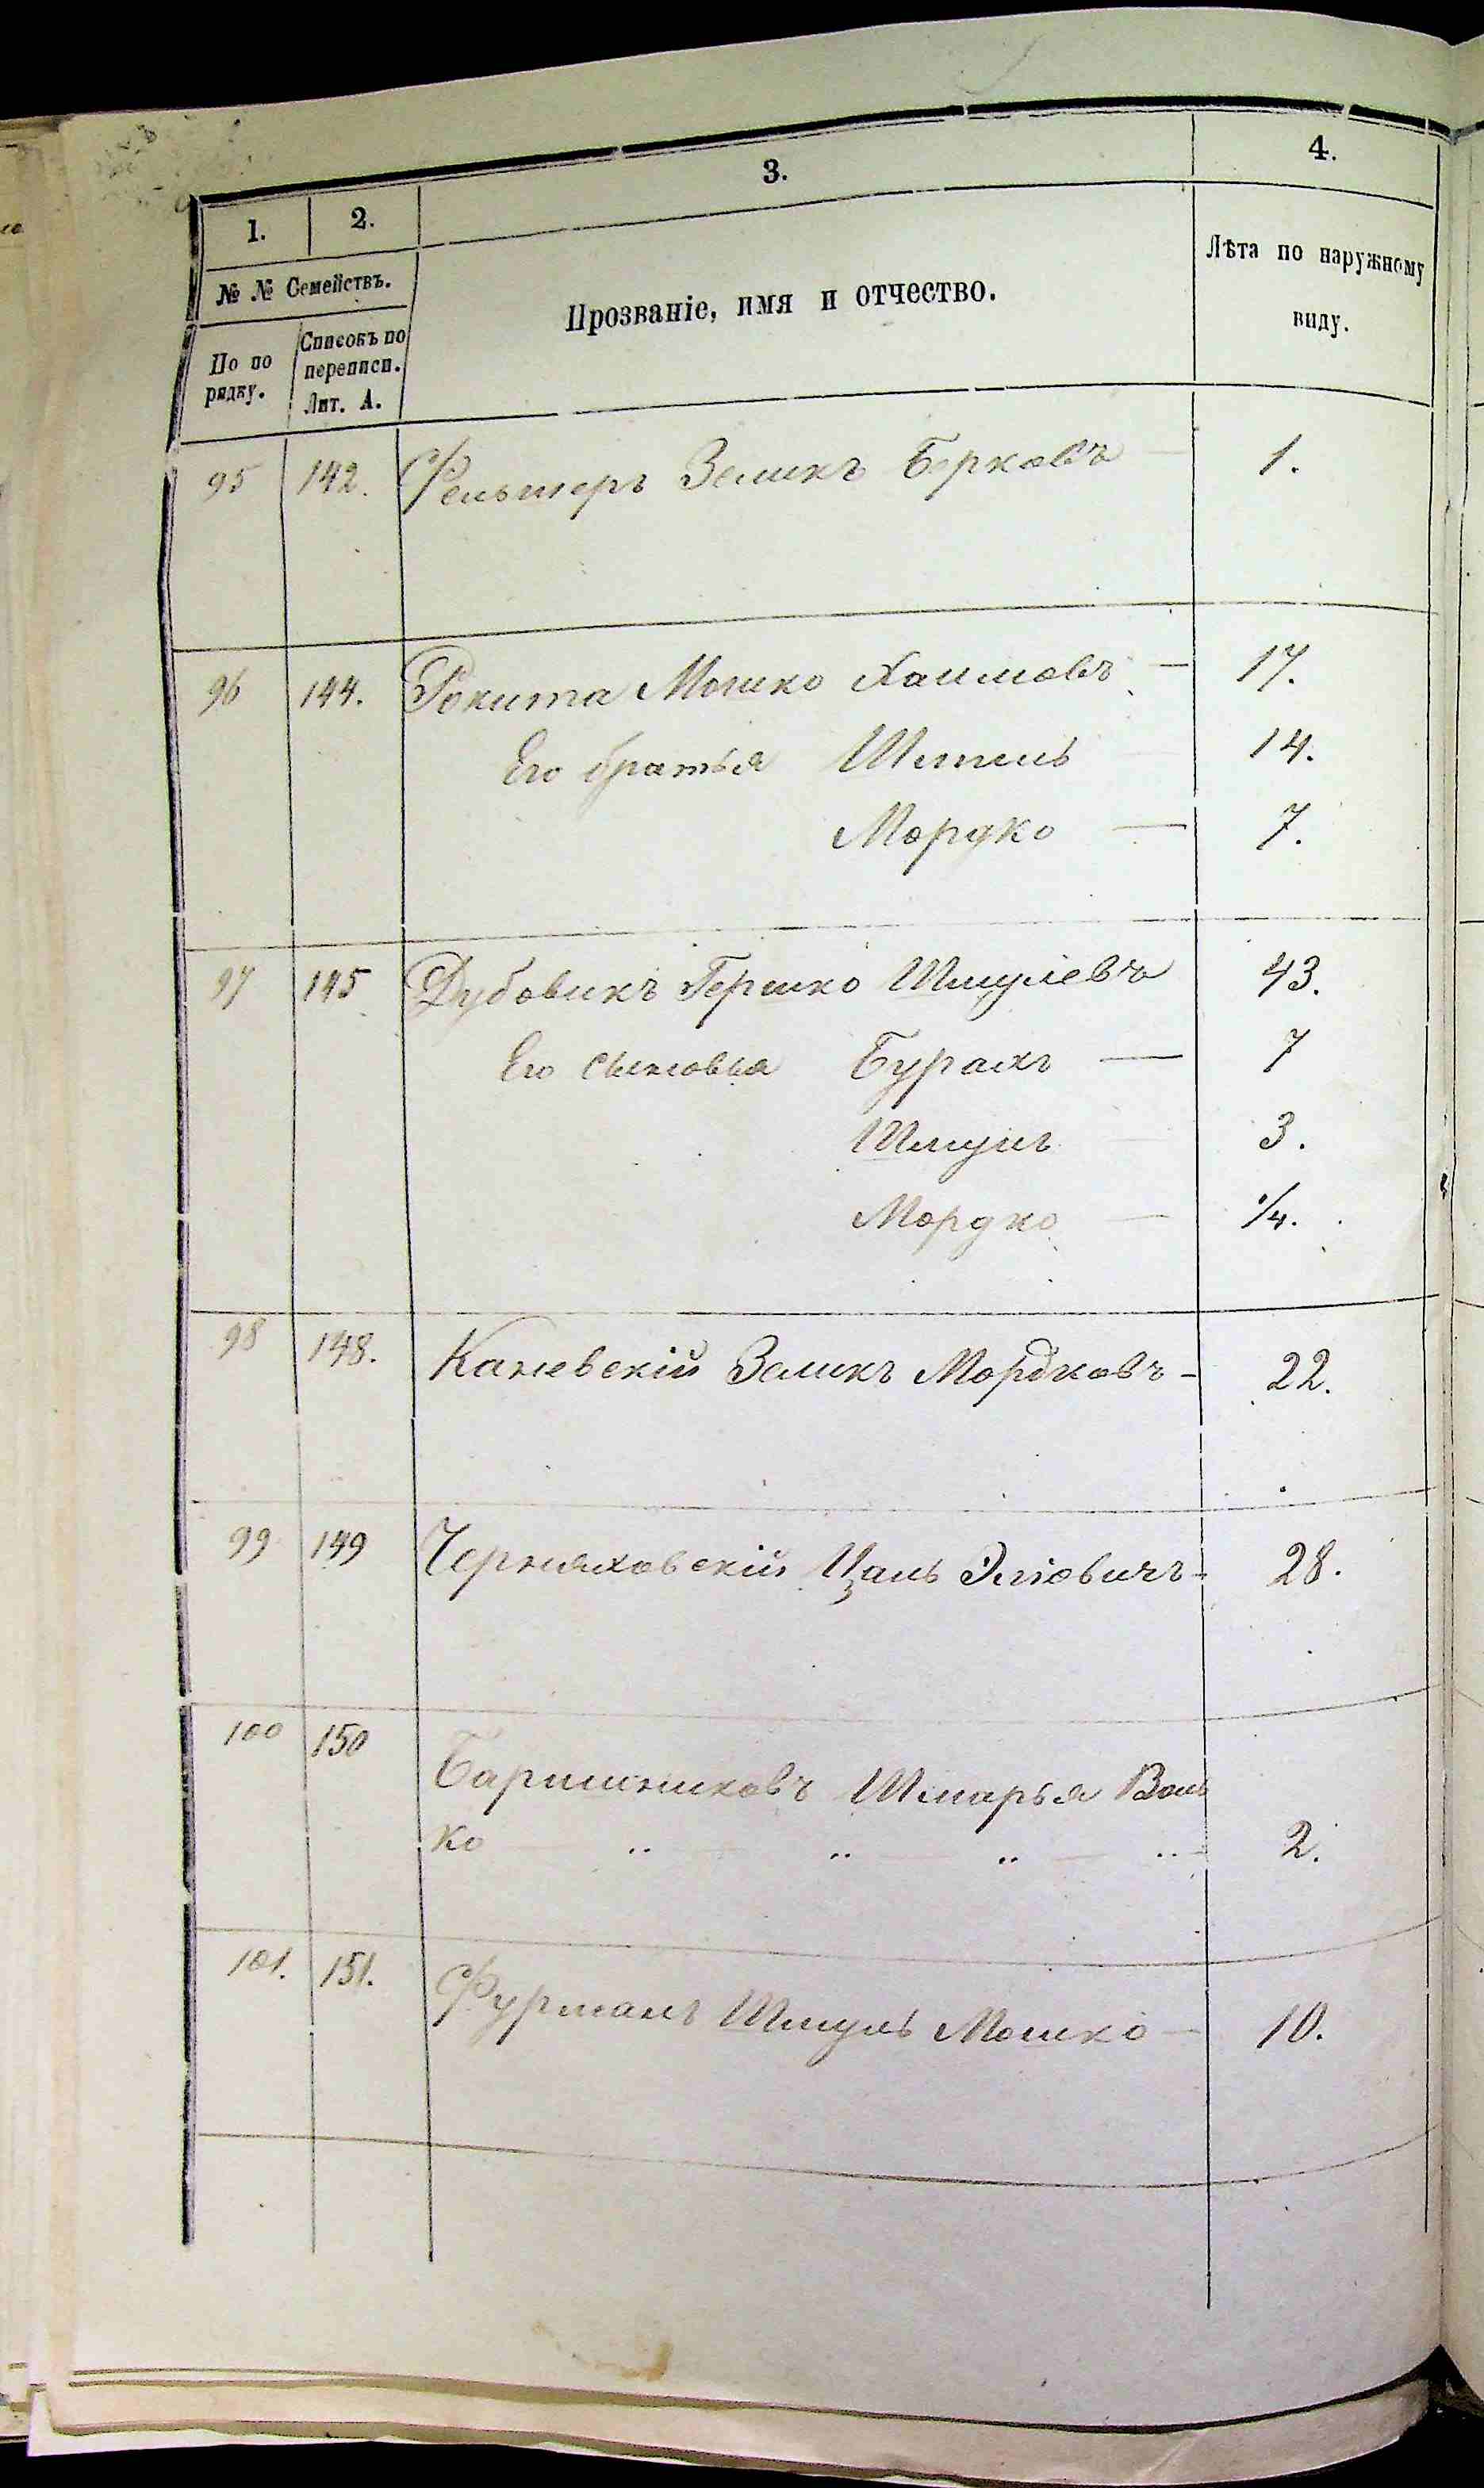 1.
2.
3.
4.
№ № Семействъ.
По по
рядку.
Списокъ по
переписи.
Лит. А.
Прозваніе, имя и отчество.
Лѣта по наружному
виду.
95 142. Фельшеръ Зеликъ Берковъ — 1.
96 144. Рокита Мошко Хаимовъ — 17.
Его братья Шепель 14.
Мордко — 7.
97 145 Дубовикъ Гершко Шмулевъ 43.
Его сыновья Бурахъ — 7
Шмуль 3.
Мордко — 1/4.
98 148. Каневскій Зеликъ Мордковъ - 22.
99 149 Черняховскій Цаль Эліовичъ - 28.
100 150 Баришниковъ Шмарья Воль
ко — .. — .. — .. — .. - 2.
101. 151. Фурманъ Шмуль Мошко — 10.